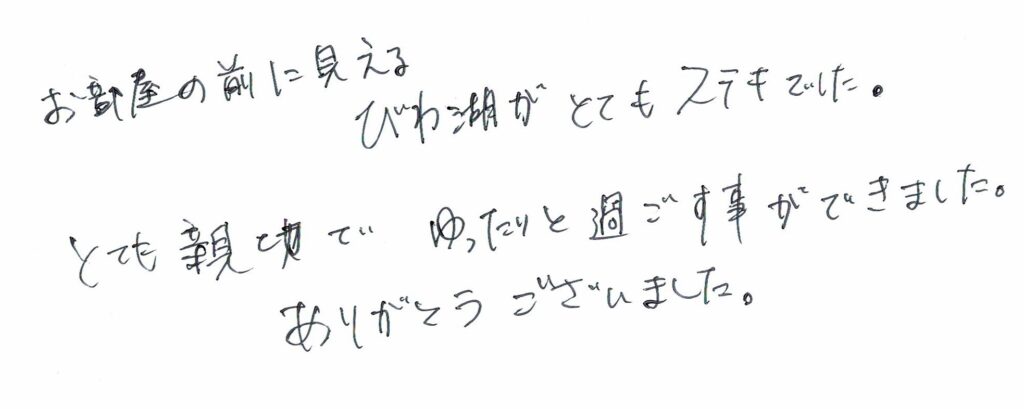 お部屋の前に見える
びわ湖がとてもステキでした。
とても親切で ゆったりと過ごす事ができました。
ありがとうございました。